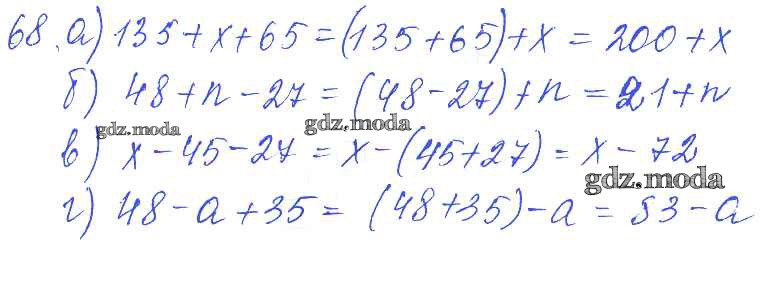 68. а) 135 + x + 65 = (135 + 65) + x = 200 + x
б) 48 + n - 27 = (48 - 27) + n = 21 + n
gdz.moda gdz.moda
в) x - 45 - 27 = x - (45 + 27) = x - 72
gdz.moda
г) 48 - a + 35 = (48 + 35) - a = 83 - a